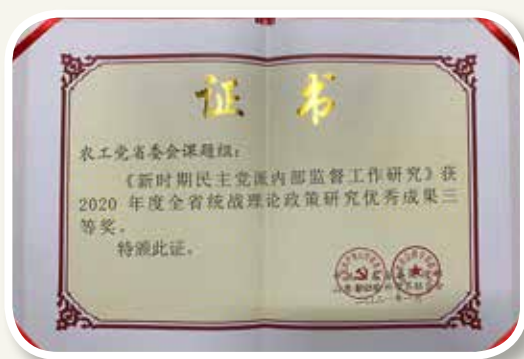 证书
农工党省委会课题组：
《新时期民主党派内部监督工作研究》获
2020 年度全省统战理论政策研究优秀成果三
等奖。
特颁此证。